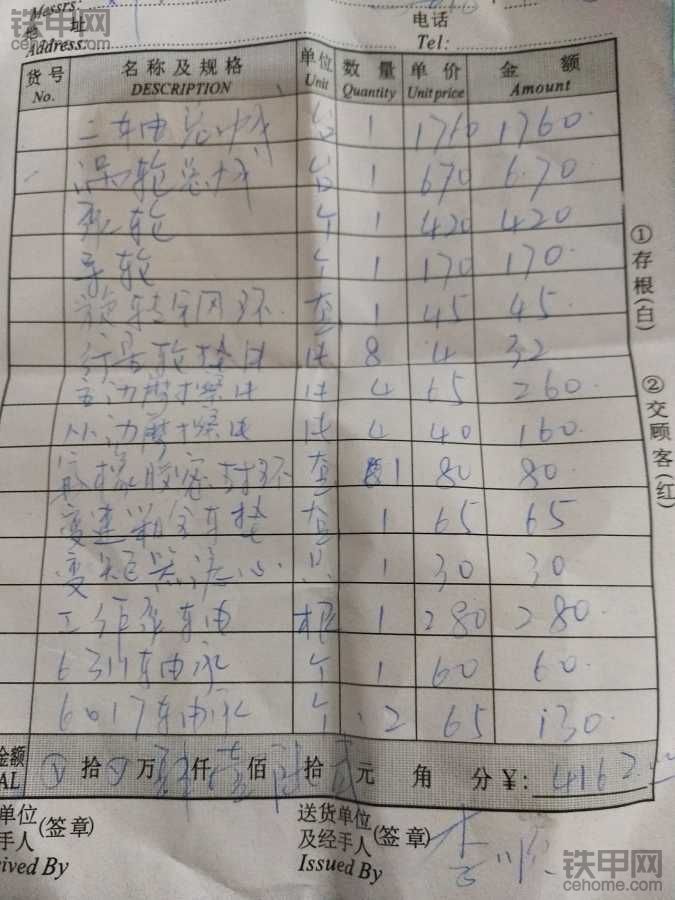 铁甲网
cehome.com
Messrs:
地 址
Address:
电话
Tel:
货号 名称及规格 单位 数量 单价 金额
No. DESCRIPTION Unit Quantity Unit price Amount
二轴总成 台 1 1760 1760.
涡轮总成 台 1 670 670.
泵轮 个 1 420 420
导轮 个 1 170 170.
旋转密闭环 套 1 45 45.
行星轮垫片 片 8 4 32
主动摩擦片 片 4 65 260.
从动摩擦片 片 4 40 160.
橡胶密封环 套 1 80 80.
变速 套 1 65 65
变矩器滤心 只 1 30 30
工作泵轴 根 1 280 280.
6311轴承 个 1 60 60.
6017轴承 个 2 65 130.
金额 拾 万 肆仟壹佰陆拾贰元 角 分¥: 4162.00
AL
①存根(白)
②交顾客(红)
单位
手人(签章)
ived By
送货单位
及经手人(签章)
Issued By
铁甲网
cehome.com